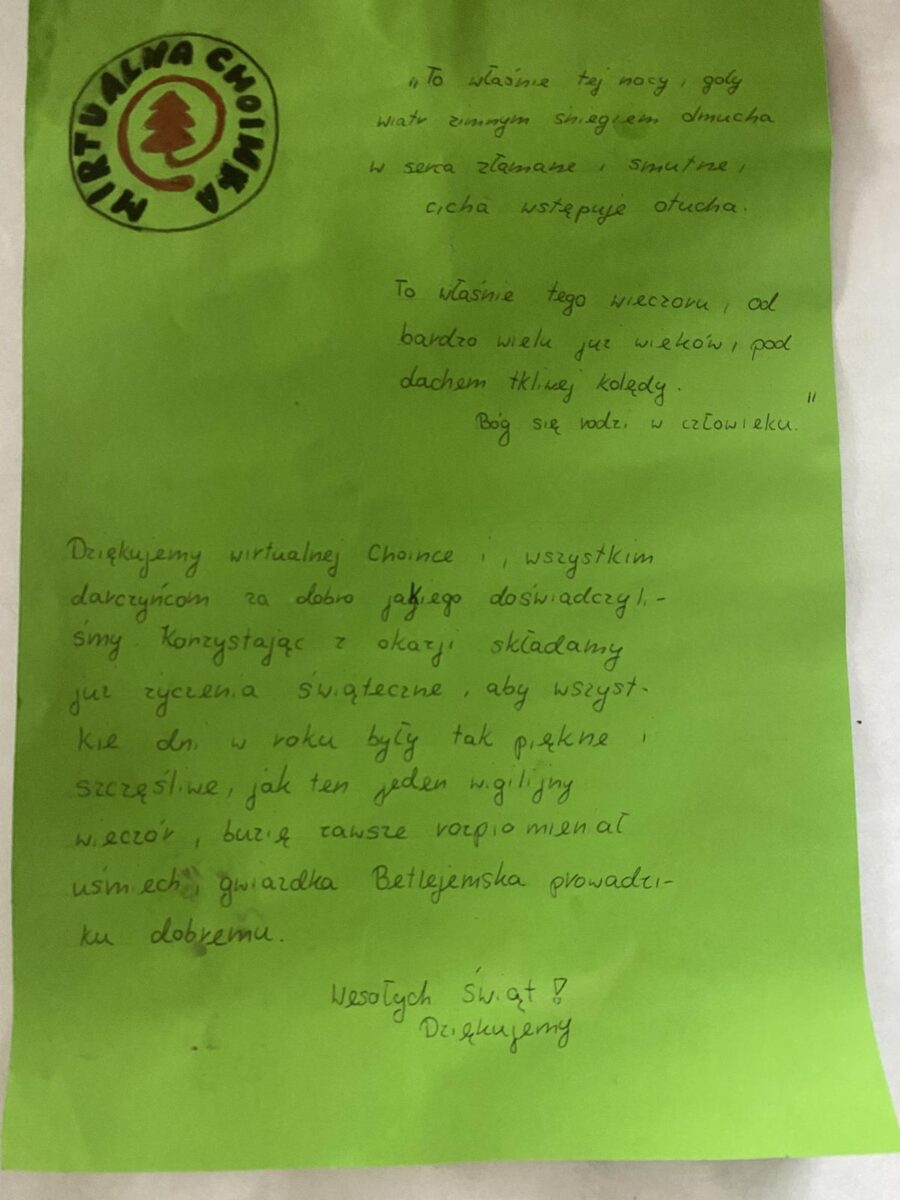 WIRTUALNA CHOINKA
„To właśnie tej nocy, gdy
wiatr zimnym śniegiem dmucha
w serca złamane i smutne,
cicha wstępuje otucha.
To właśnie tego wieczoru, od
bardzo wielu już wieków, pod
dachem tkliwej kolędy.
Bóg się rodzi w człowieku."
Dziękujemy wirtualnej Choince i, wszystkim
darczyńcom za dobro jakiego doświadczyli-
śmy. Korzystając z okazji składamy
już życzenia świąteczne, aby wszyst-
kie dni w roku były tak piękne i
szczęśliwe, jak ten jeden wigilijny
wieczór, buzię zawsze rozpromieniał
uśmiech, gwiazdka Betlejemska prowadzi-
ku dobremu.
Wesołych Świąt!
Dziękujemy